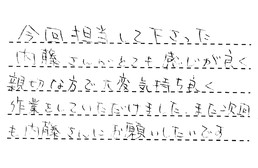 今回担当して下さった
内藤さんがとても感じが良く
親切な方で大変気持ち良く
作業をしていただけました また次回
も内藤さんにお願いしたいです